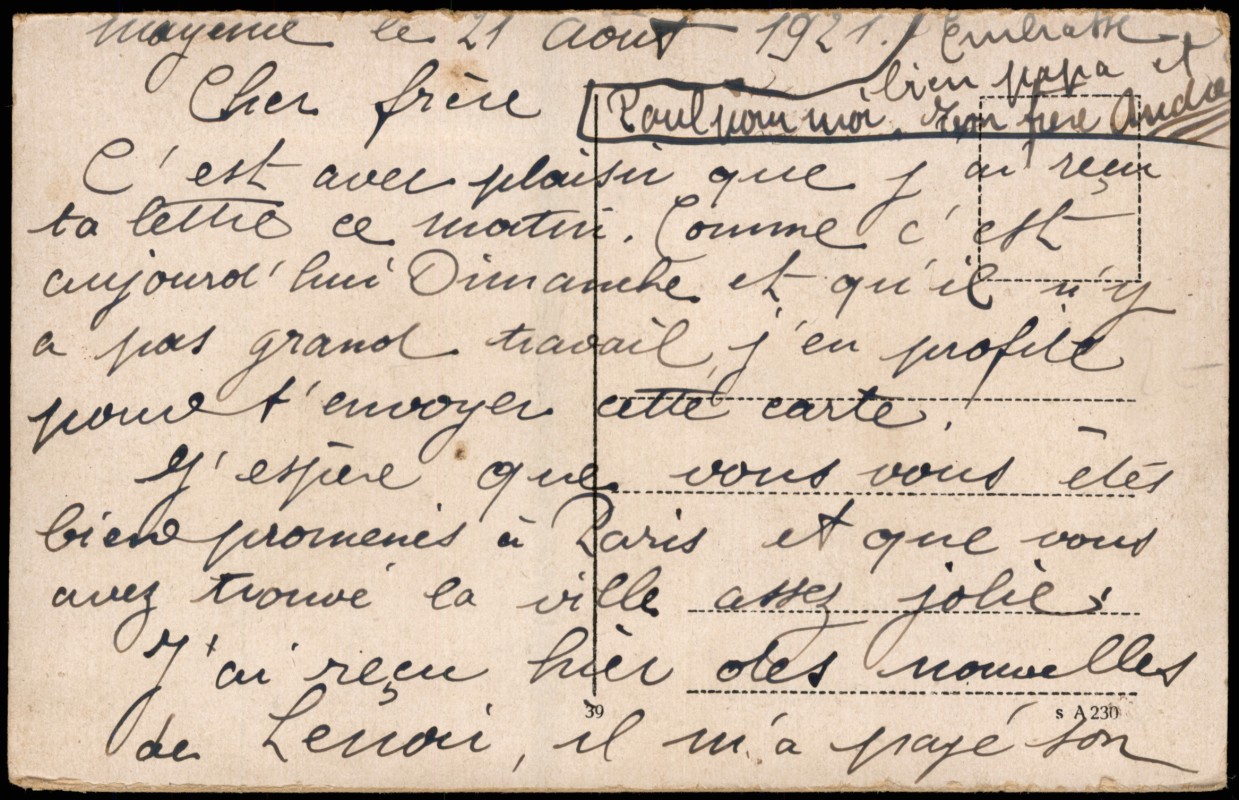 Mayenne le 21 Août 1921.
Cher frère
C'est avec plaisir que j'ai reçu
ta lettre ce matin. Comme c'est
aujourd'hui Dimanche et qu'il n'y
a pas grand travail, j'en profite
pour t'envoyer cette carte.
J'espère que vous vous êtes
bien promenés à Paris et que vous
avez trouvé la ville assez jolie.
J'ai reçu hier des nouvelles
de Lenoir, il m'a payé son
Embrasse
bien papa et
Paul pour moi. Ton frère André
39
s A 230